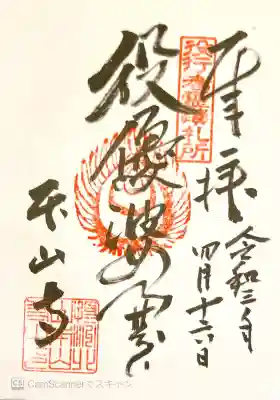 奉拝
令和三年
四月十六日
役行者霊蹟札所
役優婆塞
本山寺
CS CamScannerでスキャン